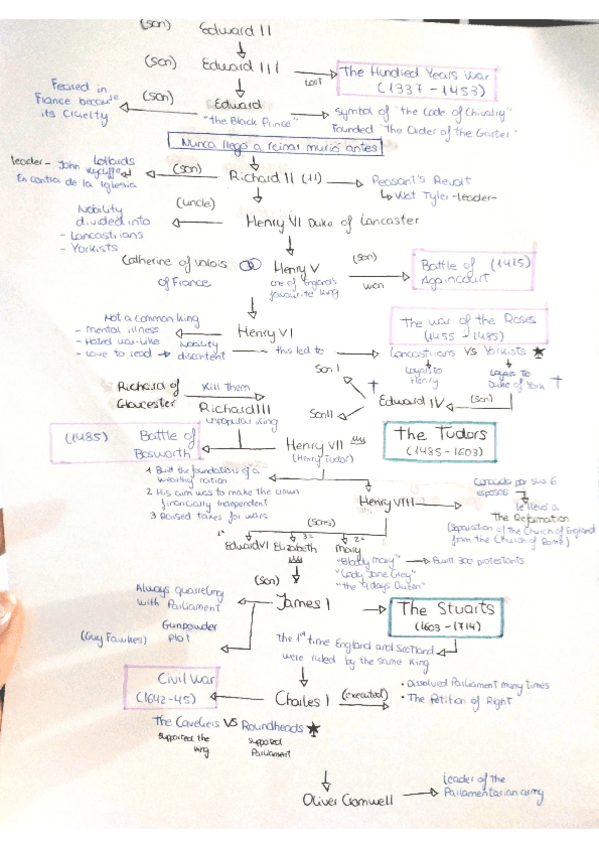 (son) Edward II
(son) Edward III Lost The Hundred Years War
(1337 - 1453)
Feared in
France because
its cruelty
(son) Edward
"the Black Prince"
Symbol of "the Code of Chivalry"
Founded "The Order of the Garter"
Nunca llegó a reinar murió antes
leader - John Wycliffe Lollards
En contra de la Iglesia
(son) Richard II (11) Peasant's Revolt
Wat Tyler -leader-
Nobility
divided into
- Lancastrians
- Yorkists
(uncle) Henry VI Duke of Lancaster
Catherine of Valois
of France
Henry V
one of England's
favourite king
(son)
won
Battle of (1415)
Againcourt
Not a common king
- mental illness
- Hated war-like
- Love to read
Nobility
discontent
Henry VI
this led to
The war of the Roses
(1455 - 1485)
Lancastrians VS Yorkists
Loyals to
Henry
Loyals to
Duke of York
(son)
Edward IV
Son I
Son II
Richard of
Gloucester
Kill Them
Richard III
unpopular king
(1485) Battle of
Bosworth
Henry VII
(Henry Tudor)
The Tudors
(1485 - 1603)
1 Built the foundations of a
wealthy nation
2 His aim was to make the crown
financially independent
3 Raised taxes for wars
Henry VIII
Conocido por sus 6
esposas
le llevó a
The Reformation
(Separation of the Church of England
from the Church of Rome)
(sons)
1º Edward VI
3º Elizabeth
2º Mary
"Bloody Mary"
"Lady Jane Grey"
"the 9 days Queen"
Burnt 300 protestants
Always quarreling
with Parliament
(son)
James I
The Stuarts
(1603 - 1714)
(Guy Fawkes) Gunpowder
plot
The 1st time England and Scotland
were ruled by the same King
Civil War
(1642-45)
Charles I (executed)
• Dissolved Parliament many times
• The Petition of Right
The Cavaliers VS Roundheads
supported the
king
supported
Parliament
Oliver Cromwell
leader of the
Parliamentarian army